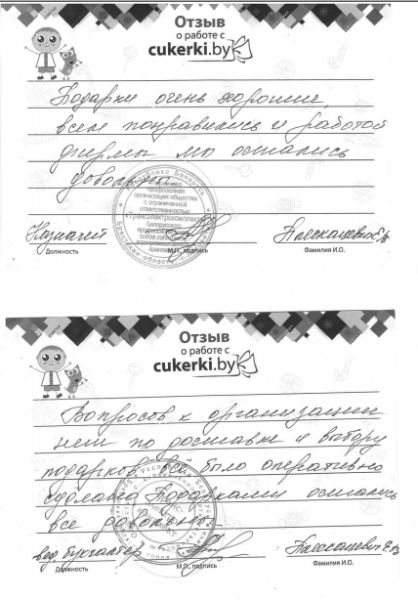 Отзыв
о работе с
cukerki.by
Подарки очень хорошие,
всем понравились и работой
фирмы мы остались
довольны.
Казначей
Должность
М.П., подпись
Фамилия И.О.
Отзыв
о работе с
cukerki.by
Вопросов к организации
нет по доставке и выбору
подарков всё было оперативно
сделано Подарками остались
все довольны.
вед. бухгалтер
Должность
М.П., подпись
Фамилия И.О.